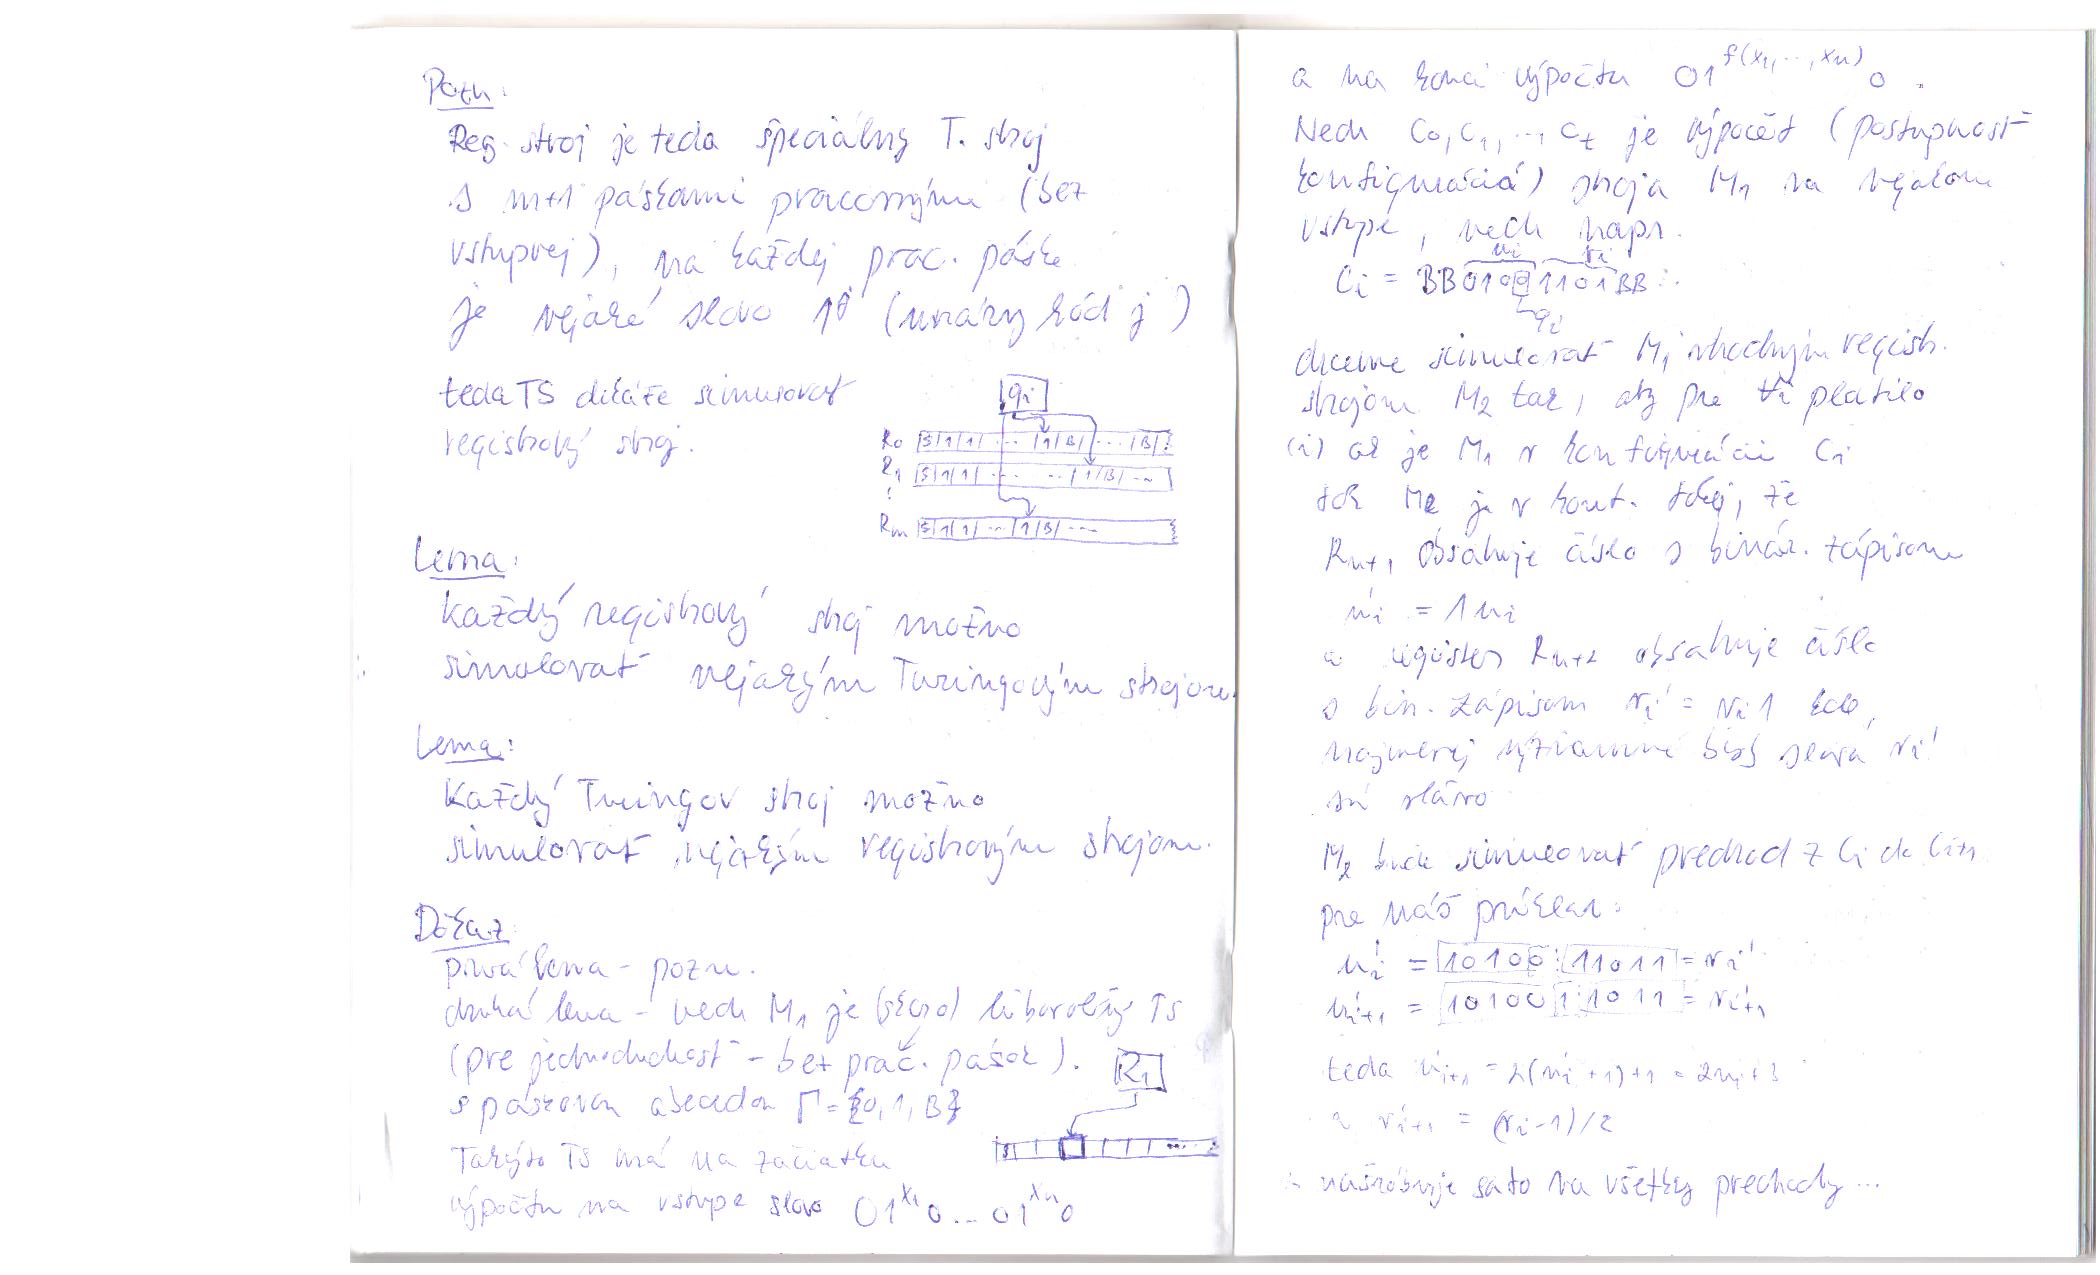 Pozn:
Reg. stroj je teda špeciálny T. stroj
s m+1 páskami pracovnými (bez
vstupnej), na každej prac. páske
je nejaké slovo 1^j (unárny kód j)
teda TS dokáže simulovať
registrový stroj.
qi
R0 $|1|1| ... |1|B| ... |B|
R1 $|1|1| ... |1|B| ...
Rm $|1|1| ... |1|B| ...
Lema:
Každý registrový stroj možno
simulovať nejakým Turingovým strojom.
Lema:
Každý Turingov stroj možno
simulovať nejakým registrovým strojom.
Dôkaz:
prvá lema - pozn.
druhá lema - nech M1 je ľubovoľný TS
(pre jednoduchosť - bez prac. pások).
R1
s páskovou abecedou Γ = {0,1,B}
Takýto TS má na začiatku
výpočtu na vstupe slovo 01^x1 0...01^xn 0
a na konci výpočtu 01^f(x1,...,xn) 0.
Nech C0,C1,...,Ct je výpočet (postupnosť
konfigurácií) stroja M1 na nejakom
vstupe, nech napr.
ui vi
Ci = BB01001101BB
qi
chceme simulovať M1 vhodným registr.
strojom M2 tak, aby pre ∀i platilo
(i) ak je M1 v konfigurácii Ci
tak M2 je v konf. takej, že
Rn+1 obsahuje číslo s binár. zápisom
ui' = 1ui
a register Rn+2 obsahuje číslo
s bin. zápisom vi' = vi1 kde,
najmenej významné bity slova vi'
sú vľavo
M2 bude simulovať prechod z Ci do Ci+1
pre náš príklad:
ui' = 10100 11011 = vi'
ui+1' = 101001 1011 = vi+1'
teda ui+1 = 2(ui+1)+1 = 2ui+3
a vi+1' = (vi-1)/2
sa to na všetky prechody...